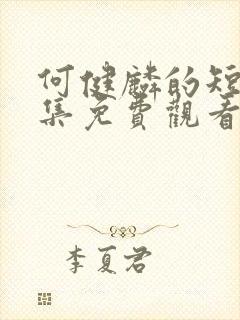 何健麟的短
集免費觀看
李夏君